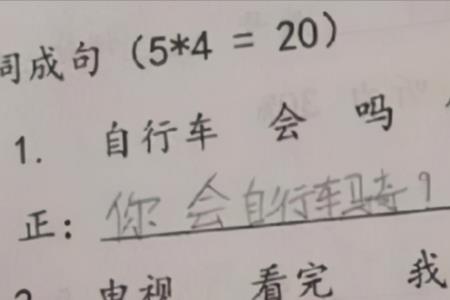 词成句 (5*4 = 20)
1. 自行车 会 吗
正: 你会自行车骑?
2 电视 看完 我